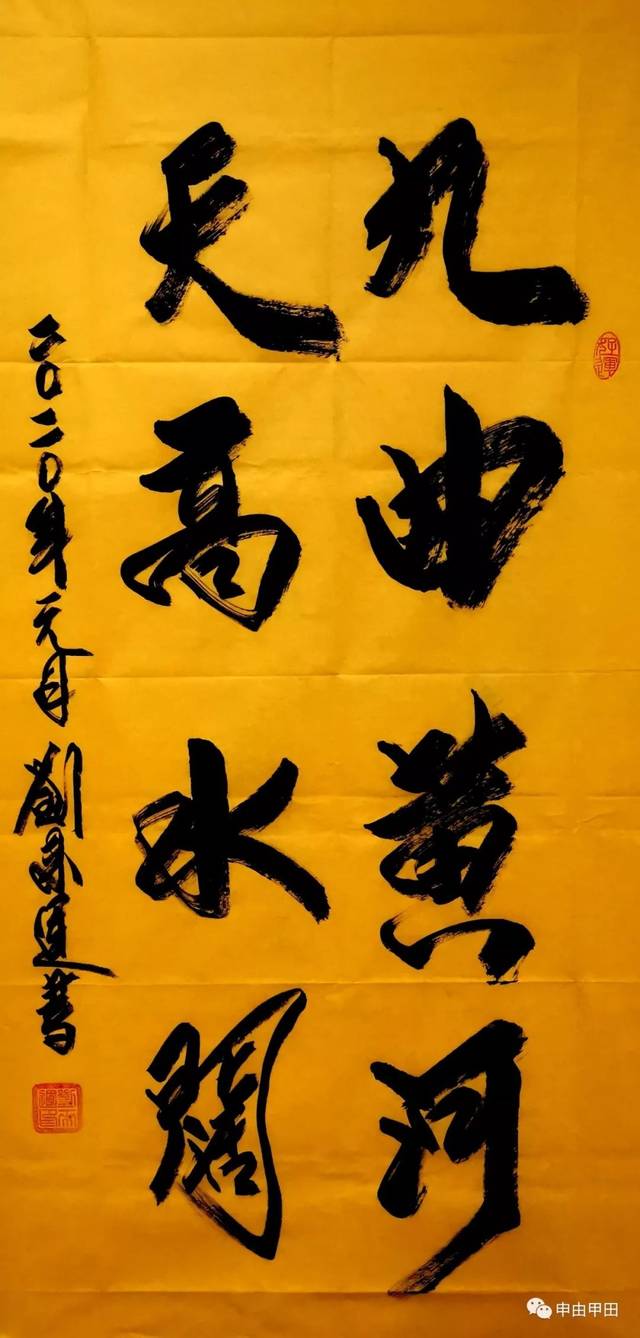 九曲黄河
天高水阔
二〇二〇年元月劉永運書
好運
申由甲田